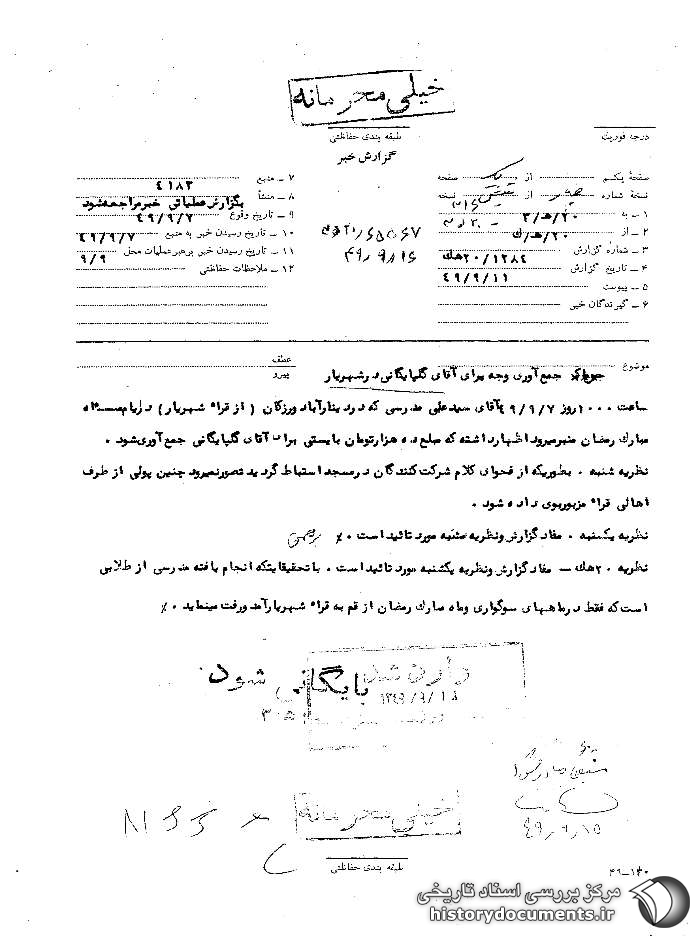 خیلی محرمانه
طبقه بندی حفاظتی
درجه فوریت
گزارش خبر
صفحهٔ یکم از یک صفحه
نسخهٔ شماره از نسخه
۱ ـ به ۲۰/هـ/۳
۲ ـ از ۲۰/هـ/ک
۳ ـ شمارهٔ گزارش ۲۰/۱۲۸٤هـک
٤ ـ تاریخ گزارش ٤۹/۹/۱۱
٥ ـ پیوست
۶ ـ گیرندگان خبر
۷ ـ منبع ٤۱۸۳
۸ ـ منشأ بگزارش عملیاتی خبر مراجعه شود
۹ ـ تاریخ وقوع ٤۹/۹/۷
۱۰ ـ تاریخ رسیدن خبر به منبع ٤۹/۹/۷
۱۱ ـ تاریخ رسیدن خبر برهبر عملیات محل ۹/۹
۱۲ ـ ملاحظات حفاظتی
موضوع جمع‌آوری وجه برای آقای گلپایگانی در شهریار
عطف
پیرو
ساعت ۱۰۰۰ روز ٤۹/۹/۷ آقای سیدعلی مدرسی که در دینارآباد ورزکان ( از قراء شهریار ) در ایام ماه
مبارک رمضان منبر میرود اظهار داشته که مبلغ ده هزار تومان بایستی برای آقای گلپایگانی جمع‌آوری شود ۰
نظریه شنبه ۰ بطوریکه از فحوای کلام شرکت کنندگان در مسجد استنباط گردید تصور نمیرود چنین پولی از طرف
اهالی قراء مزبور بوی داده شود ۰
نظریه یکشنبه ۰ مفاد گزارش و نظریه شنبه مورد تائید است ۰٪
نظریه ۲۰هـک ـ مفاد گزارش و نظریه یکشنبه مورد تائید است ۰ با تحقیقاتیکه انجام یافته مدرسی از طلابی
است که فقط در ماههای سوگواری و ماه مبارک رمضان از قم به قراء شهریار آمد و رفت مینماید ۰٪
بایگانی شود
۱۳٤۹/۹/۱۸
خیلی محرمانه
٤۹/۹/۱٥
طبقه بندی حفاظتی
مرکز بررسی اسناد تاریخی
historydocuments.ir